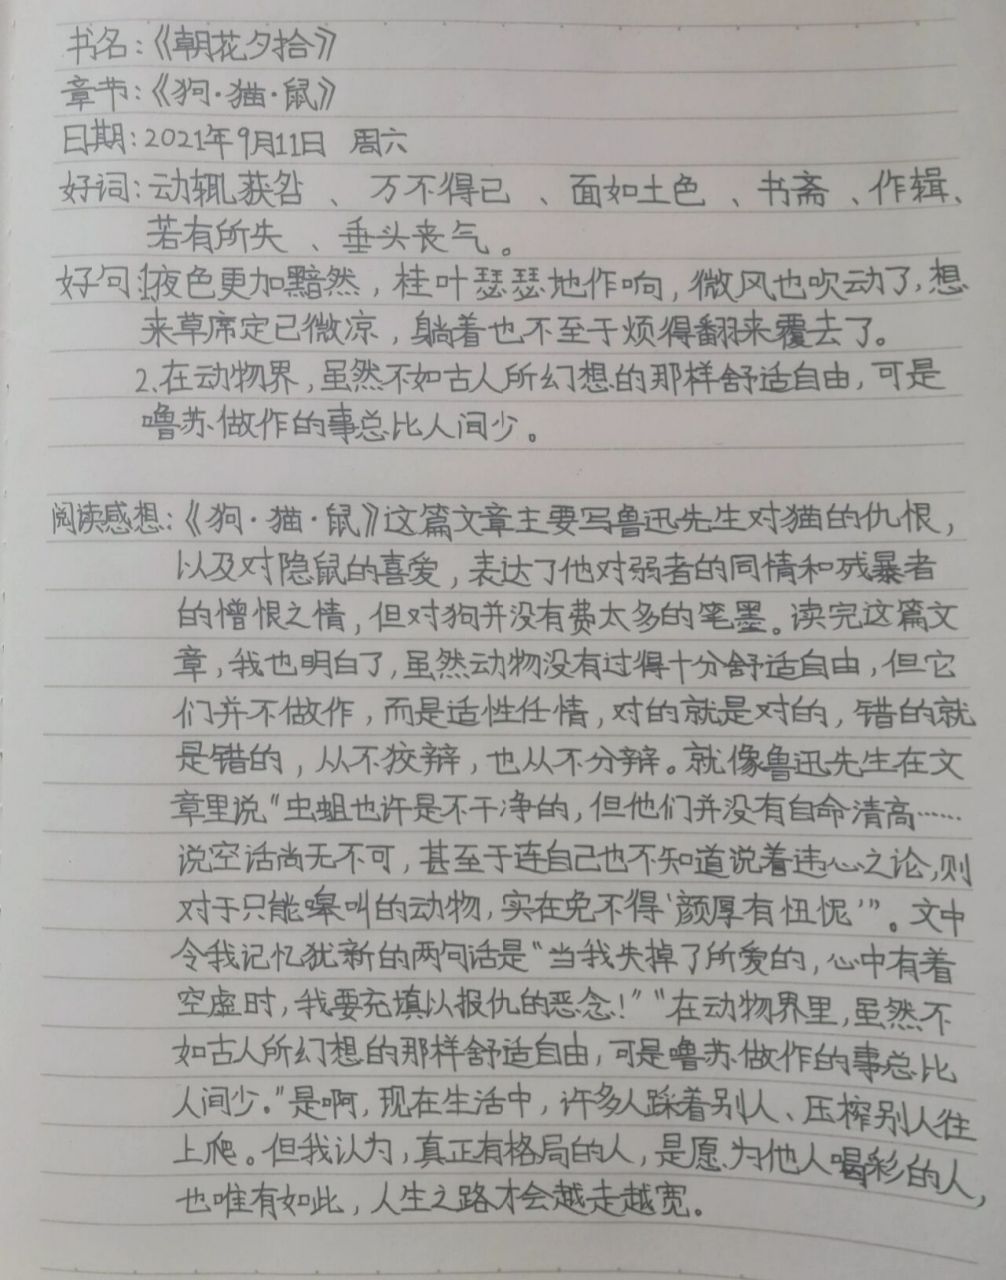 书名：《朝花夕拾》
章节：《狗·猫·鼠》
日期：2021年9月11日 周六
好词：动辄获咎 、 万不得已 、 面如土色 、 书斋 、作辑、
若有所失 、垂头丧气。
好句：1.夜色更加黯然，桂叶瑟瑟地作响，微风也吹动了，想
来草席定已微凉，躺着也不至于烦得翻来覆去了。
2.在动物界，虽然不如古人所幻想的那样舒适自由，可是
噜苏做作的事总比人间少。
阅读感想：《狗·猫·鼠》这篇文章主要写鲁迅先生对猫的仇恨，
以及对隐鼠的喜爱，表达了他对弱者的同情和残暴者
的憎恨之情，但对狗并没有费太多的笔墨。读完这篇文
章，我也明白了，虽然动物没有过得十分舒适自由，但它
们并不做作，而是适性任情，对的就是对的，错的就
是错的，从不狡辩，也从不分辩。就像鲁迅先生在文
章里说“虫蛆也许是不干净的，但他们并没有自命清高……
说空话尚无不可，甚至于连自己也不知道说着违心之论，则
对于只能嗥叫的动物，实在免不得‘颜厚有忸怩’”。文中
令我记忆犹新的两句话是“当我失掉了所爱的，心中有着
空虚时，我要充填以报仇的恶念！”“在动物界里，虽然不
如古人所幻想的那样舒适自由，可是噜苏做作的事总比
人间少。”是啊，现在生活中，许多人踩着别人、压榨别人往
上爬。但我认为，真正有格局的人，是愿为他人喝彩的人，
也唯有如此，人生之路才会越走越宽。